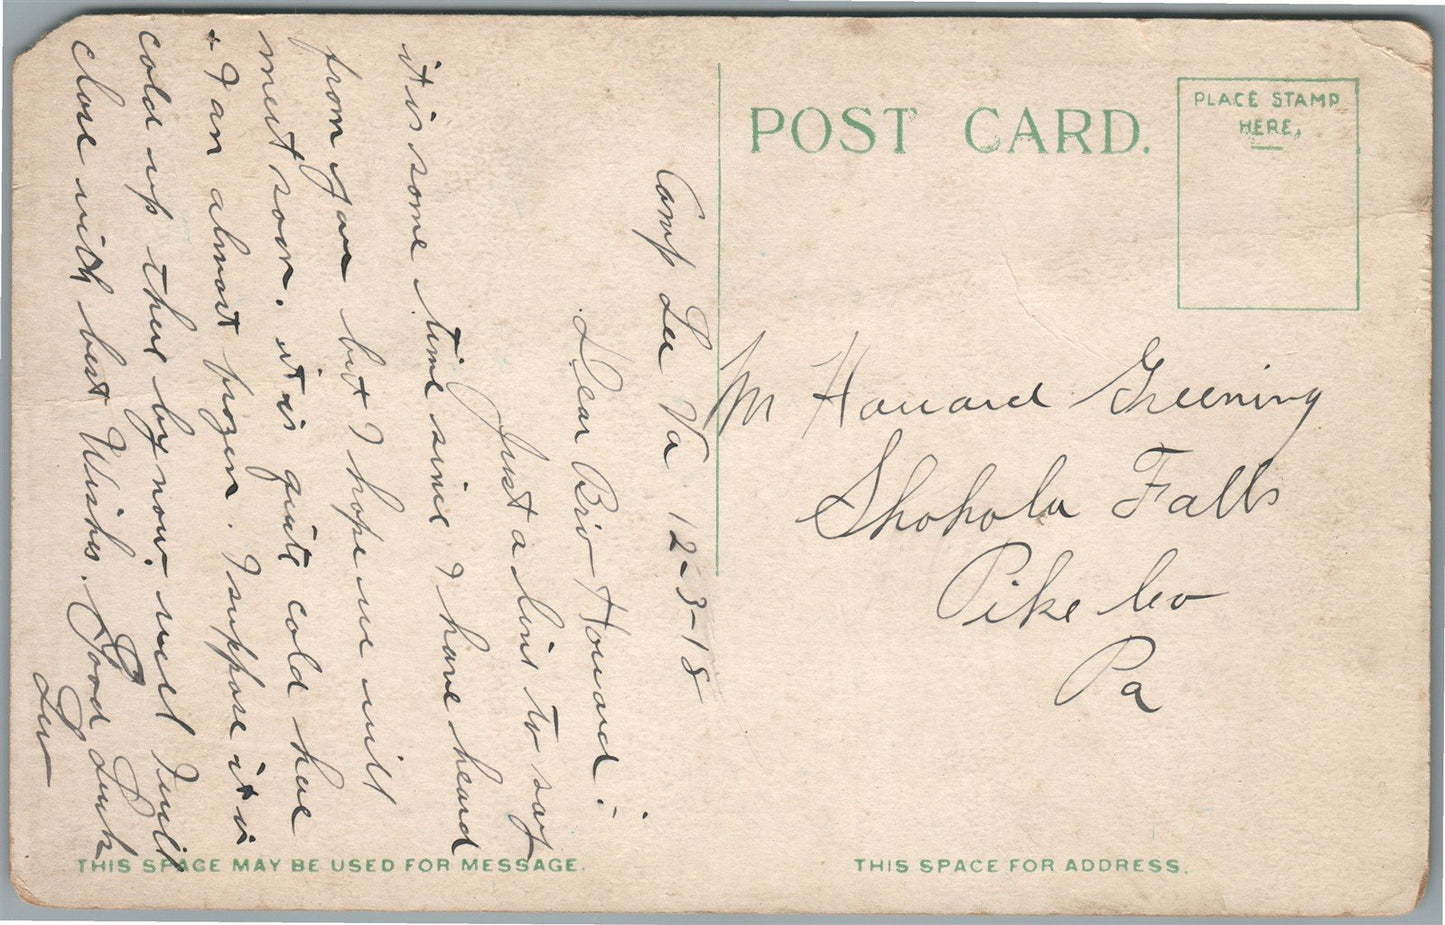 POST CARD.
PLACE STAMP
HERE.
Camp Lee Va 12-3-18
Dear Bro Howard:-
Just a line to say
it is some time since I have heard
from you but I hope we will
meet soon. it is quite cold here
+ I am almost frozen. I suppose it is
cold up there by now. well I will
close with best Wishes. Good Luck
Lew
Mr Howard Greening
Shohola Falls
Pike Co
Pa
THIS SPACE MAY BE USED FOR MESSAGE.
THIS SPACE FOR ADDRESS.